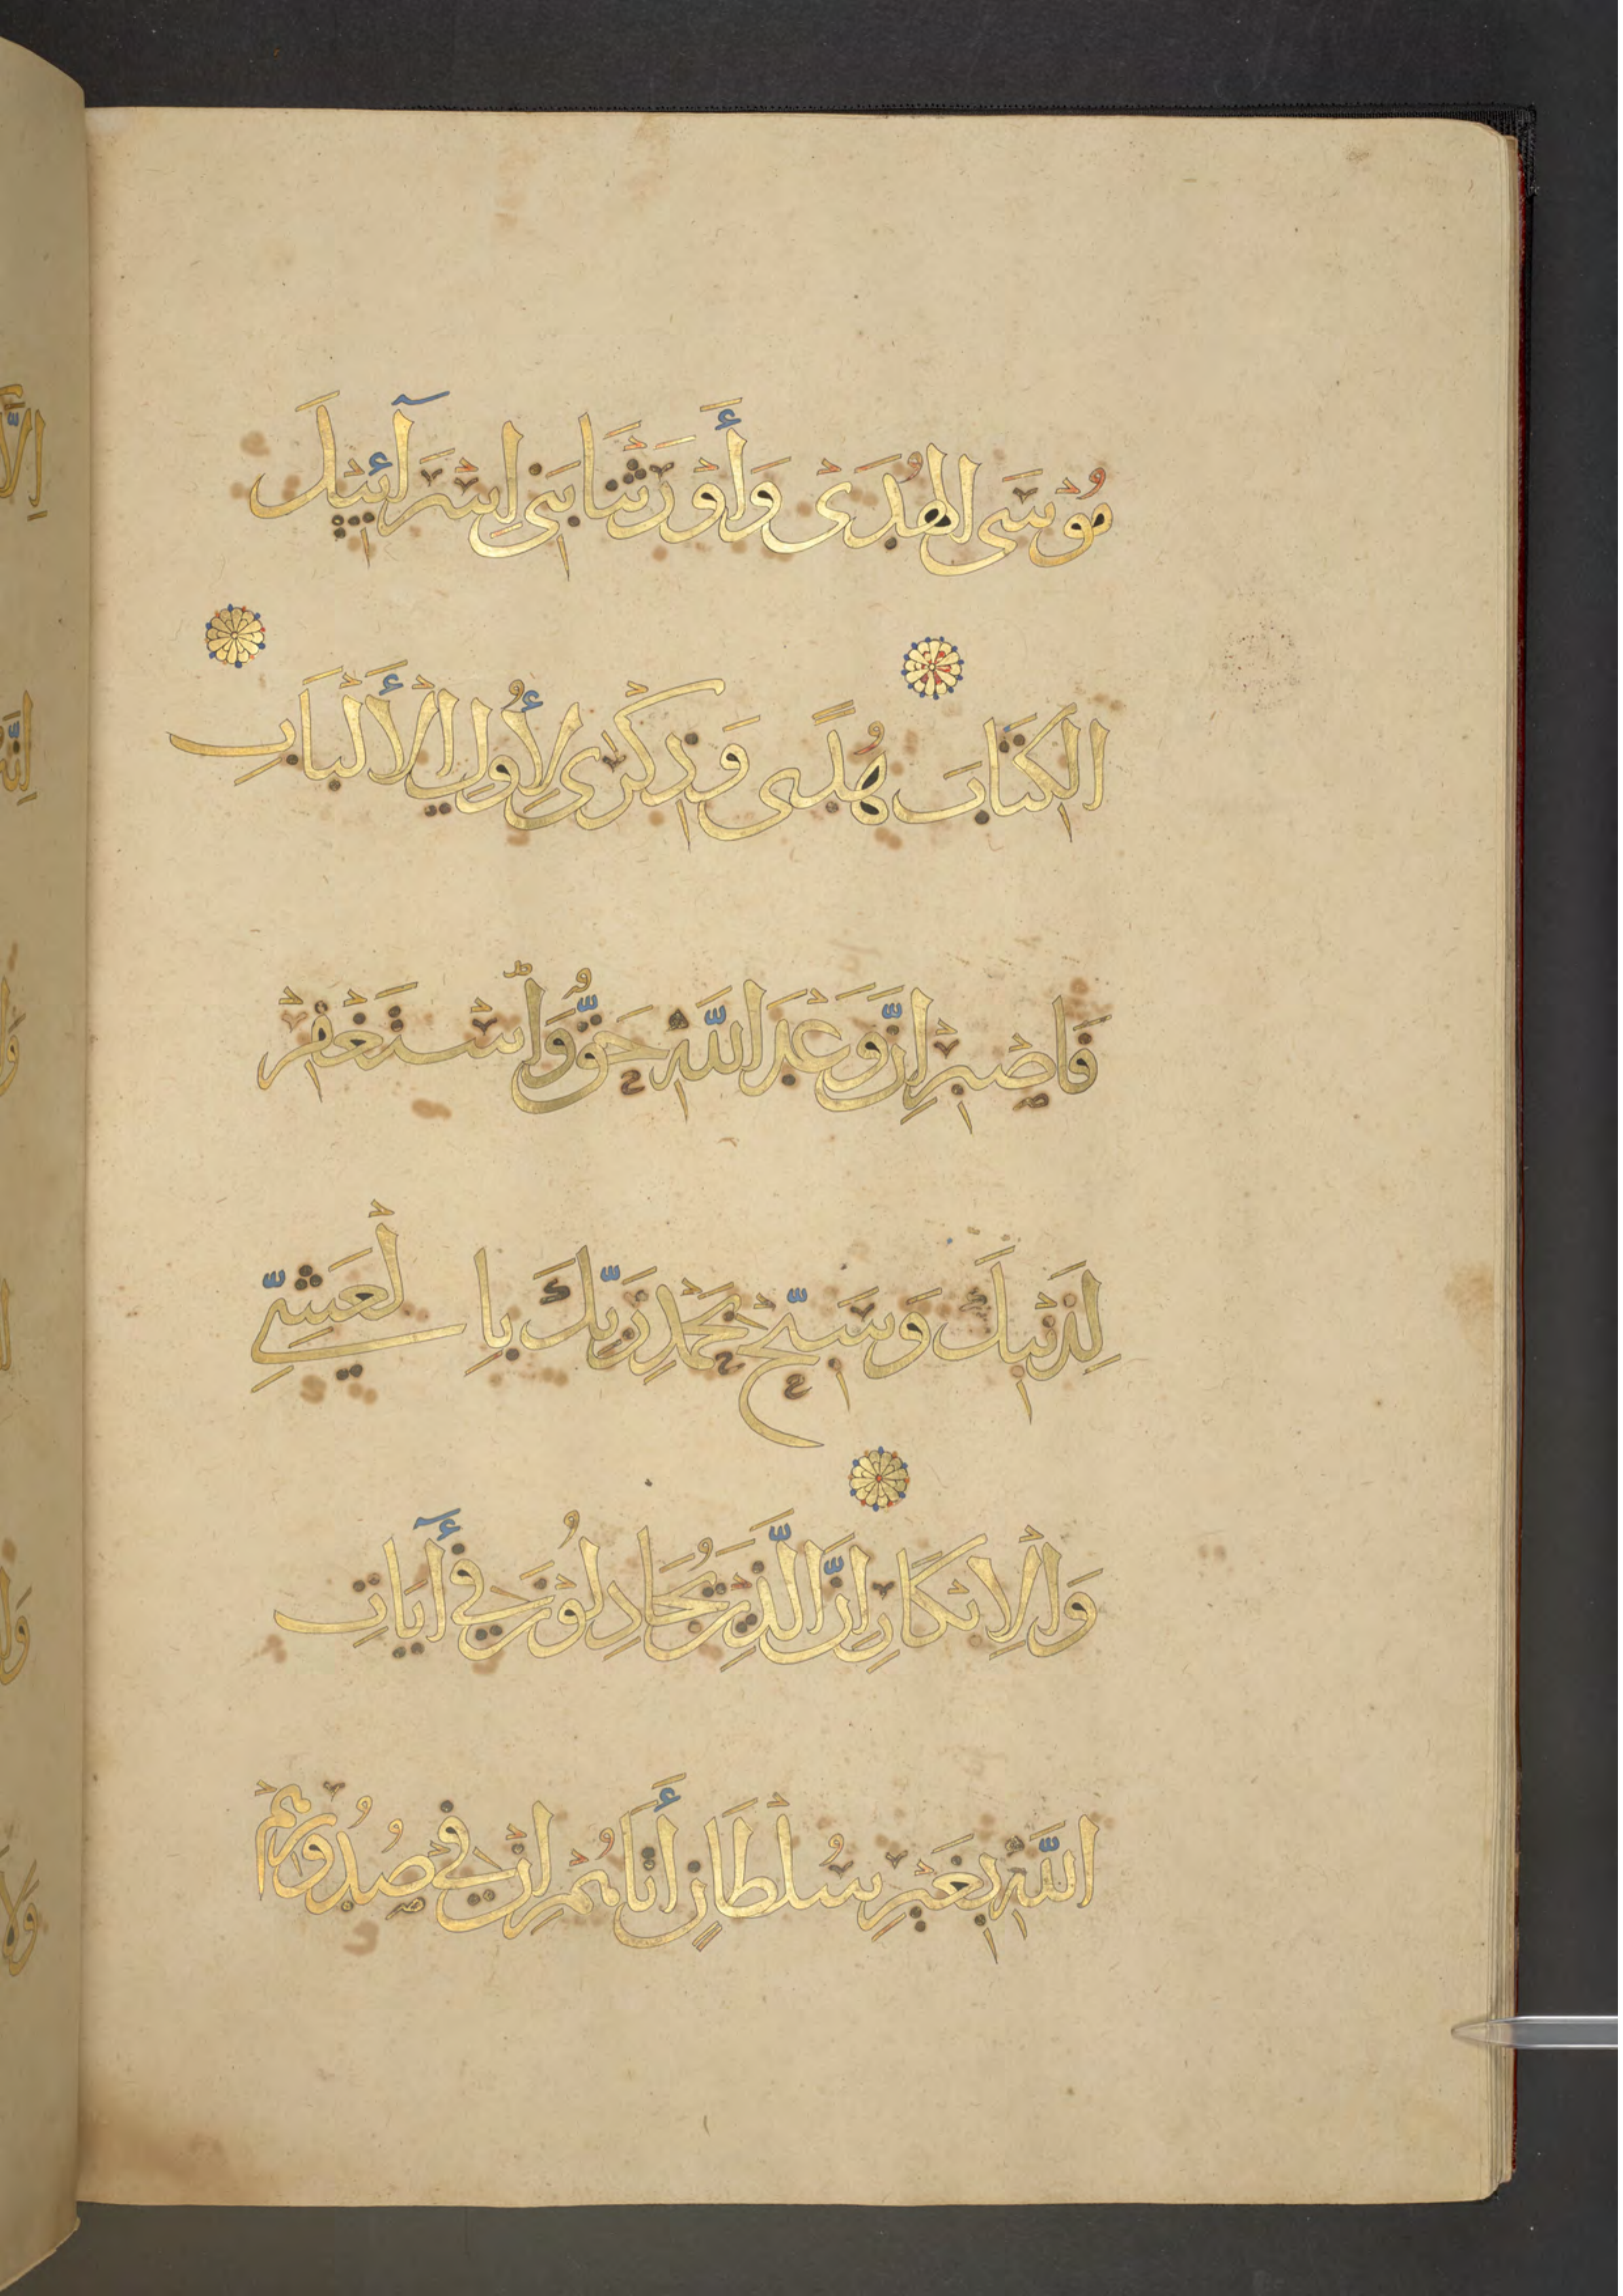 مُوْسَى الْهُدَىْ وَأَوْرَثْنَا بَنِىْ اِسْرَآئِيْلَ
الْكِتَابَ هُدًى وَذِكْرَىْ لِأُولِى الْأَلْبَابِ
فَاصْبِرْ اِنَّ وَعْدَ اللَّهِ حَقٌّ وَاسْتَغْفِرْ
لِذَنْبِكَ وَسَبِّحْ بِحَمْدِ رَبِّكَ بِالْعَشِىِّ
وَالْاِبْكَارِ اِنَّ الَّذِيْنَ يُجَادِلُوْنَ فِىْ آيَاتِ
اللَّهِ بِغَيْرِ سُلْطَانٍ أَتَاهُمْ اِنْ فِىْ صُدُورِهِمْ